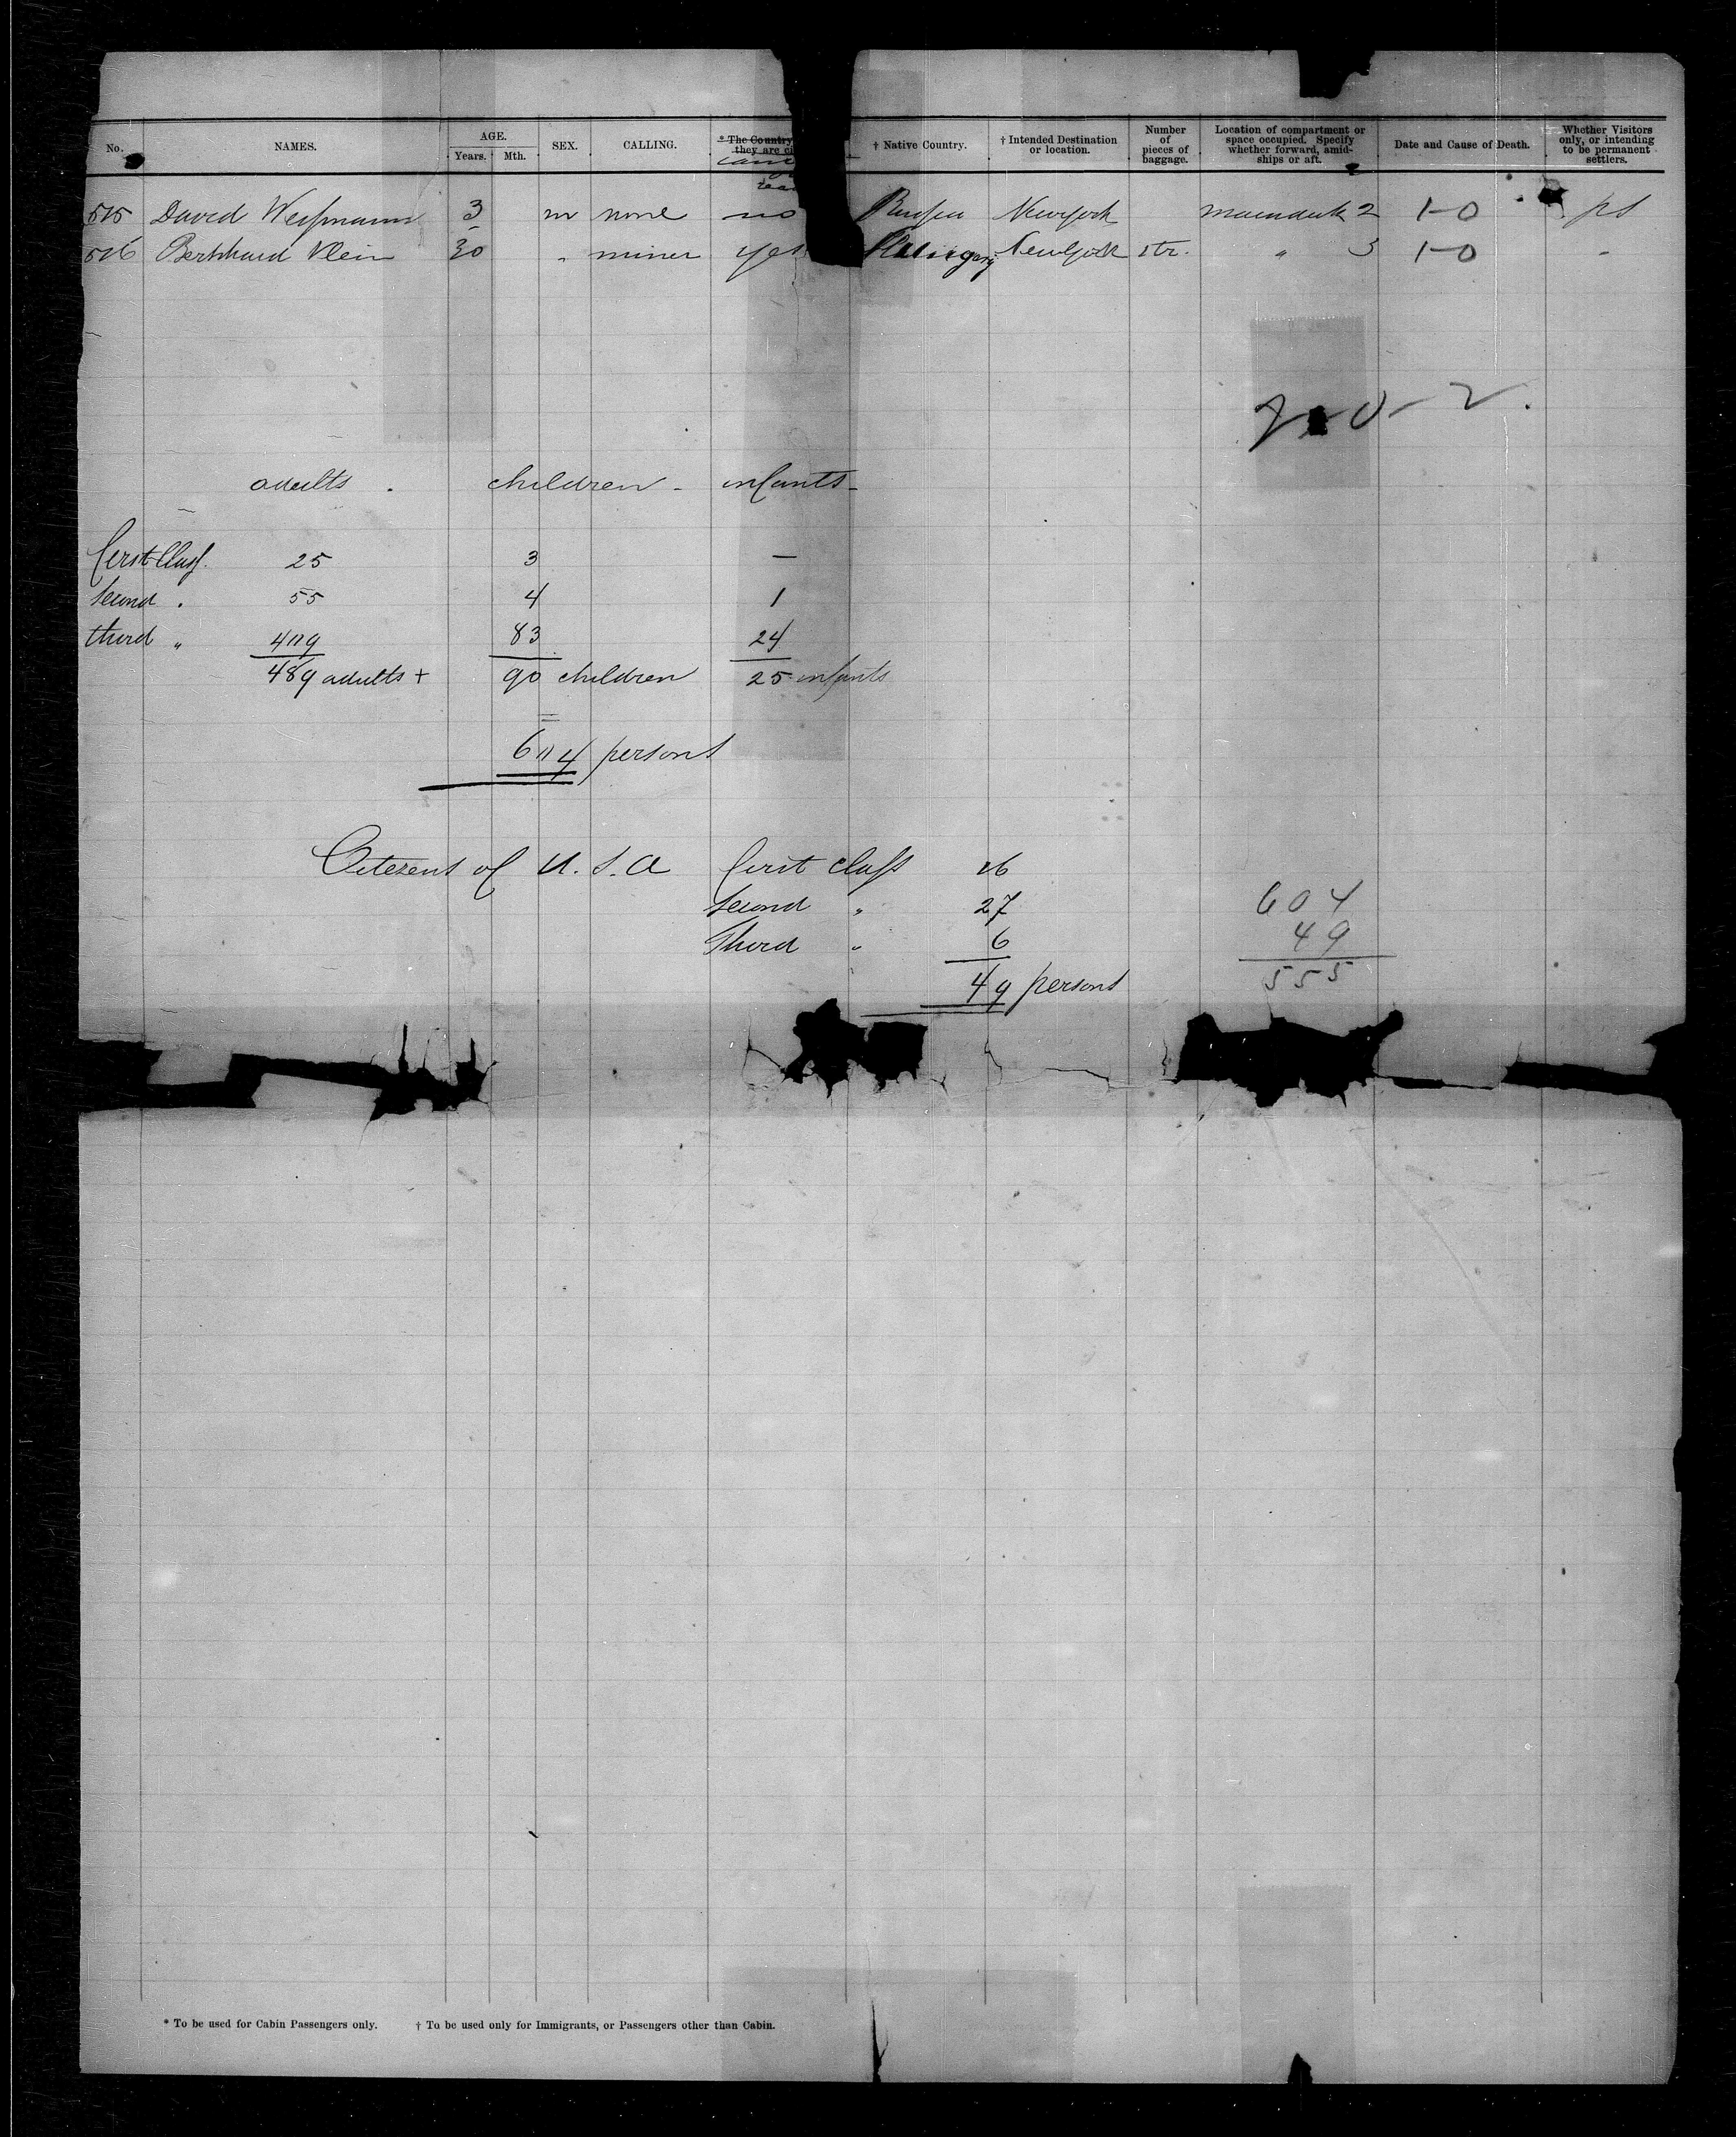 No. NAMES. AGE. Years. Mth. SEX. CALLING. * The Country they are † Native Country. † Intended Destination or location. Number of pieces of baggage. Location of compartment or space occupied. Specify whether forward, amidships or aft. Date and Cause of Death. Whether Visitors only, or intending to be permanent settlers.
515 David Weissmann 3 m none no Russia New York maindeck 2 1-0 ps
516 Bernhard Klein 30 " miner yes New York 1tr. " 3 1-0 "
adults . children - infants -
first Class. 25 3 —
second . 55 4 1
third " 409 83 24
489 adults + 90 children 25 infants
604 persons
Citezens of U.S.A first class 16
second " 27 604
Third " 6 49
49 persons 555
* To be used for Cabin Passengers only. † To be used only for Immigrants, or Passengers other than Cabin.